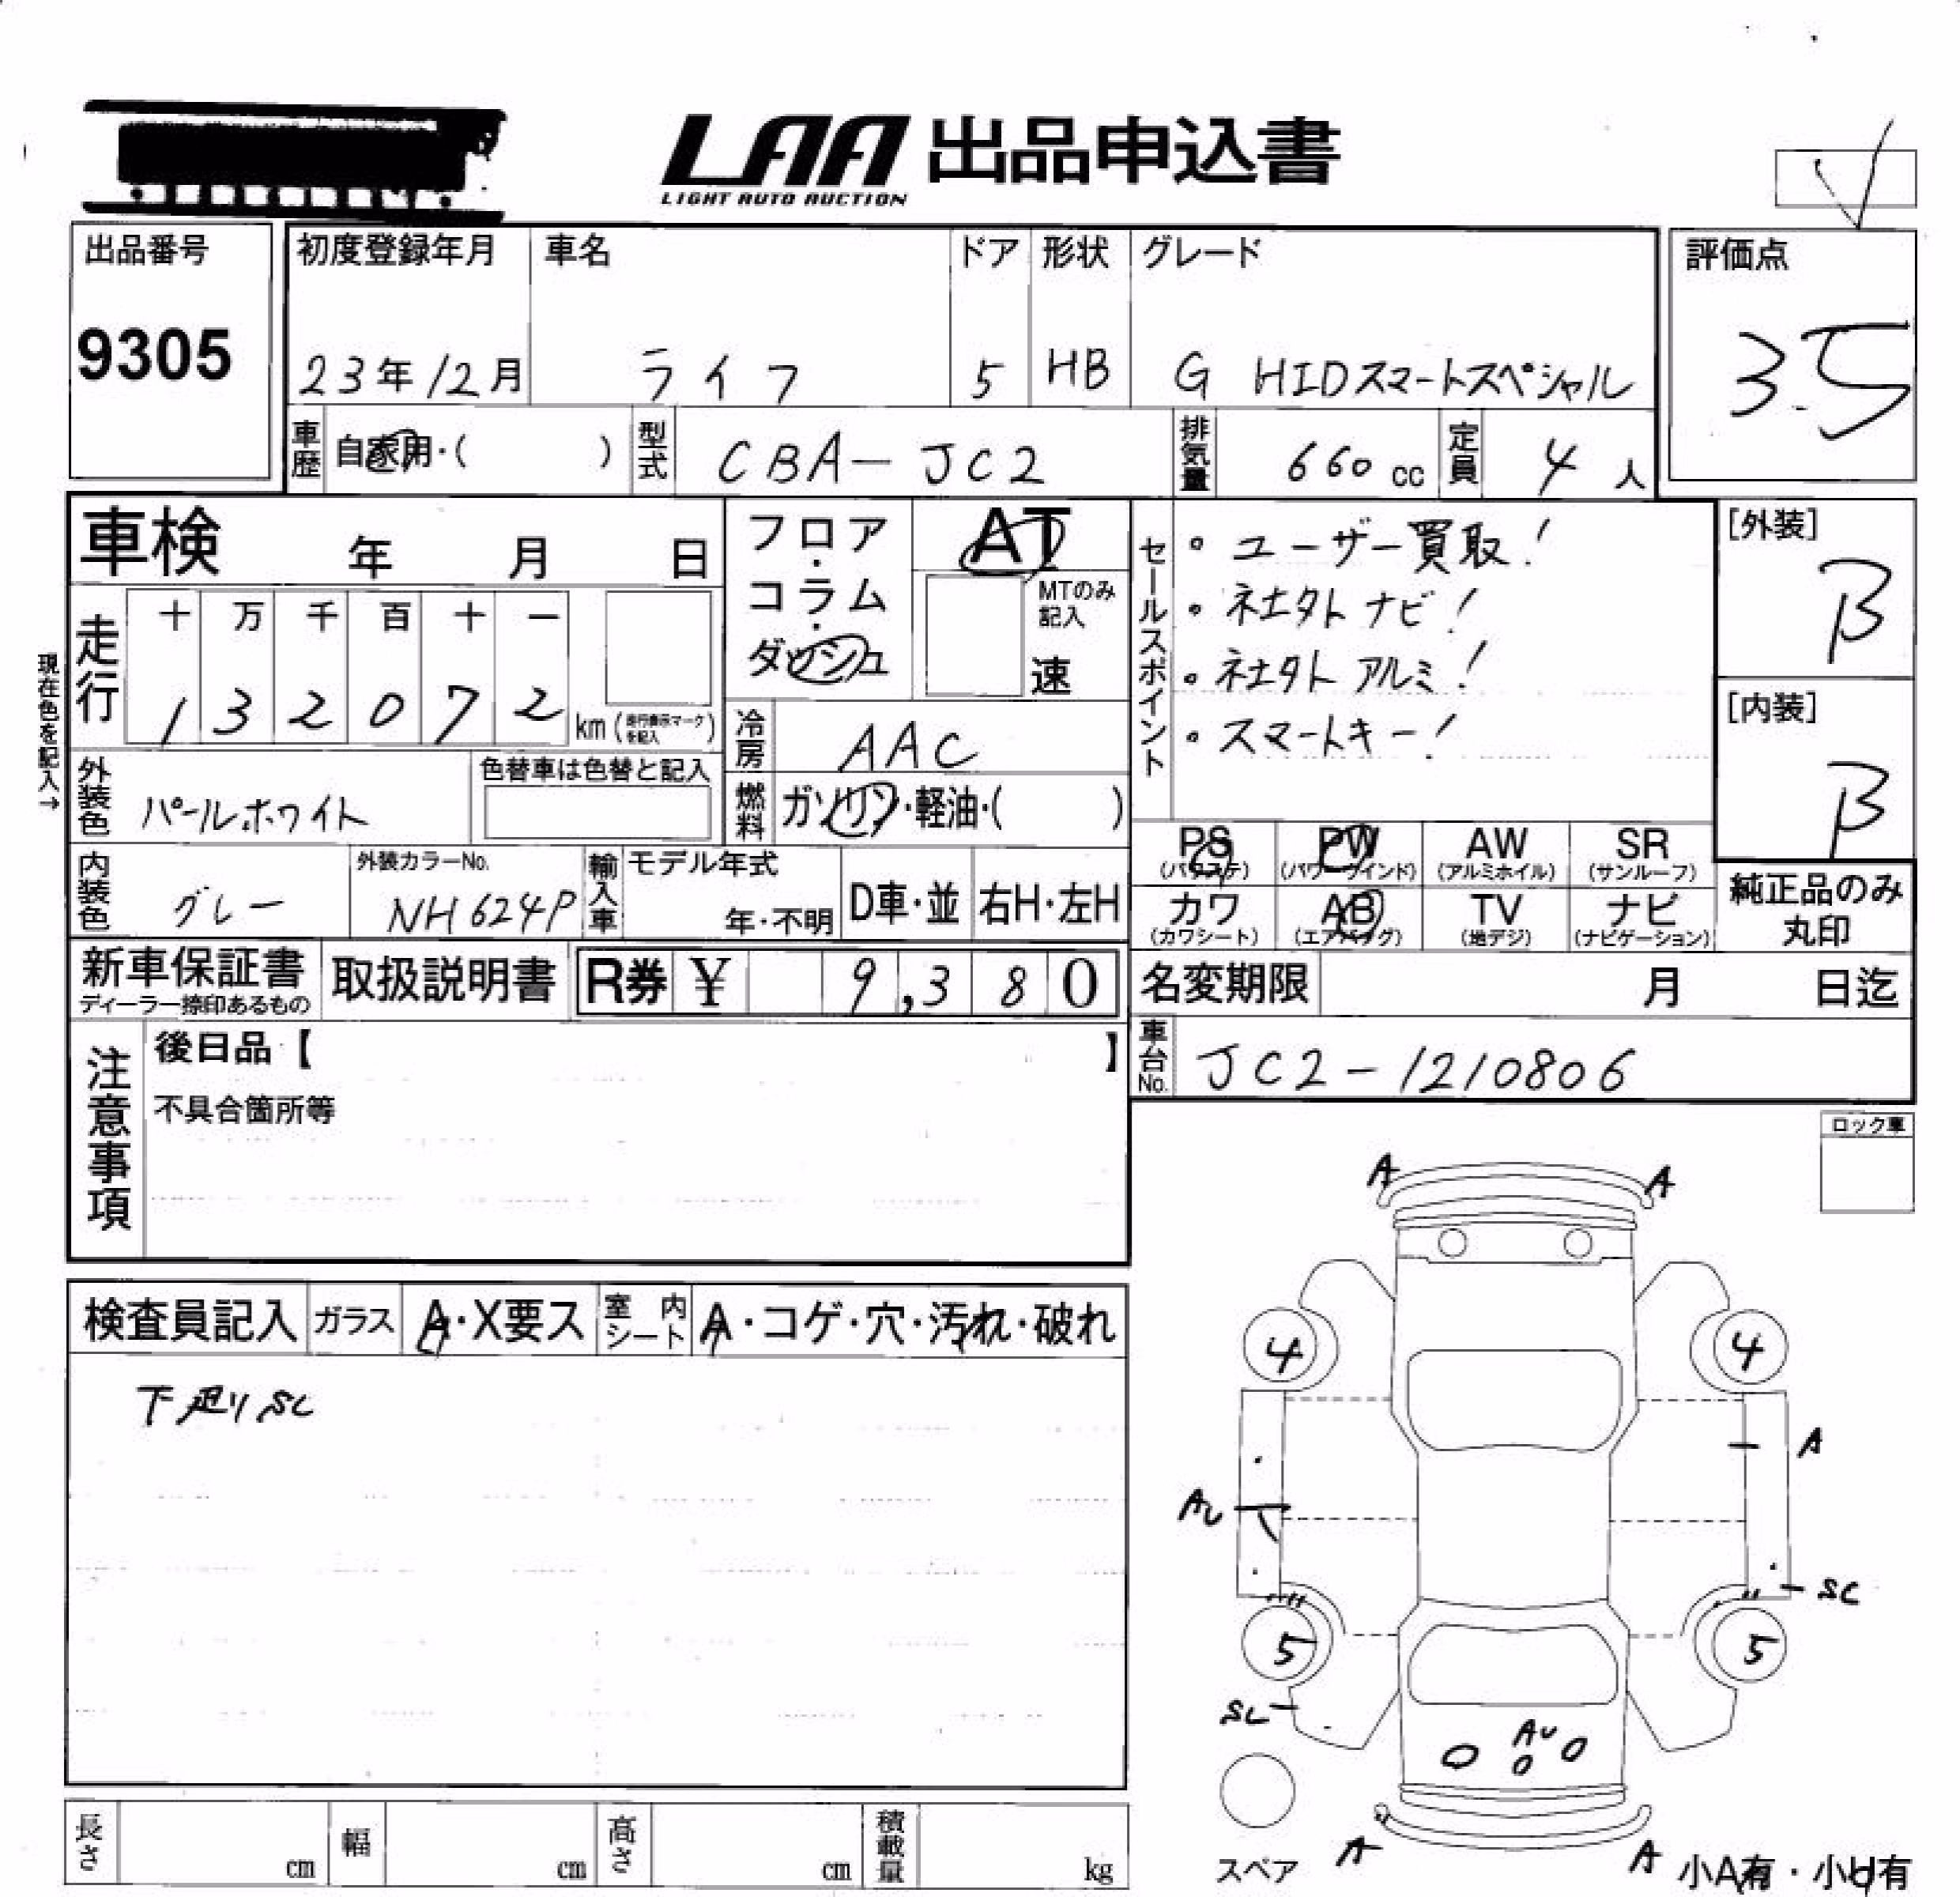 LAA 出品申込書
LIGHT AUTO AUCTION
出品番号
9305
初度登録年月 車名 ドア 形状 グレード
23年12月 ライフ 5 HB G HIDスマートスペシャル
評価点
3.5
車歴 自家用・( ) 型式 CBA-JC2 排気量 660 cc 定員 4 人
車検 年 月 日
フロア・コラム・ダッシュ
AT
MTのみ記入
速
セールスポイント
・ユーザー買取!
・社外ナビ!
・社外アルミ!
・スマートキー!
[外装]
B
[内装]
B
現在色を記入→
走行 十 万 千 百 十 一
1 3 2 0 7 2 km (走行表示マークを記入)
冷房 AAC
外装色 パールホワイト 色替車は色替と記入
燃料 ガソリン・軽油・( )
PS PW AW SR
(パワステ) (パワーウインド) (アルミホイル) (サンルーフ)
カワ AB TV ナビ
(カワシート) (エアバッグ) (地デジ) (ナビゲーション)
純正品のみ
丸印
内装色 グレー 外装カラーNo. NH624P 輸入車 モデル年式 年・不明 D車・並 右H・左H
新車保証書 取扱説明書 R券 ¥ 9,380
ディーラー捺印あるもの
名変期限 月 日迄
車台No. JC2-1210806
注意事項
後日品【 】
不具合箇所等
ロック車
検査員記入 ガラス A・X要ス 室内シート A・コゲ・穴・汚れ・破れ
下廻りSC
A A
4 4
A
AU
SC
5 5
SC
AU
A A
スペア
小A有・小U有
長さ cm 幅 cm 高さ cm 積載量 kg